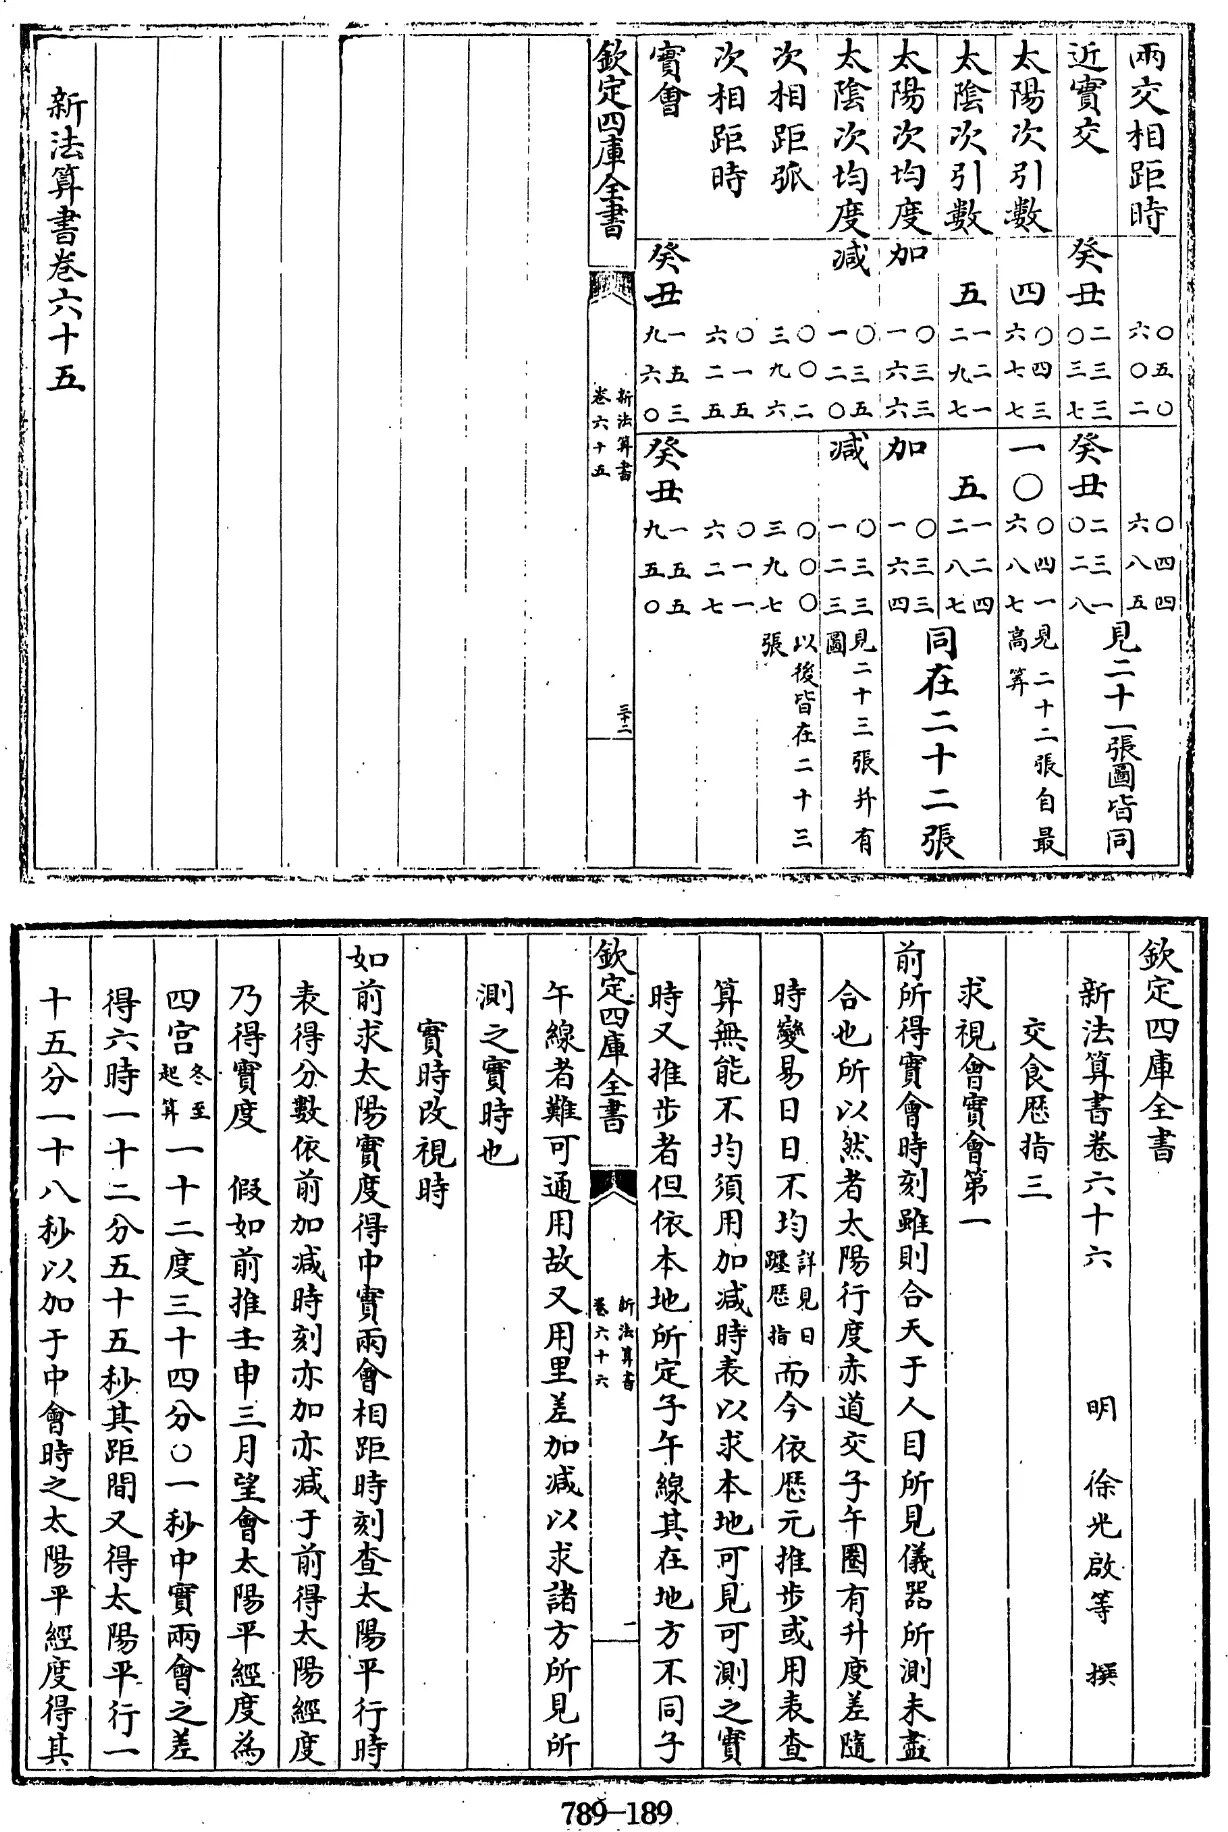 兩交相距時 ○五○六○二 ○四四六八五
近實交 癸丑二三三○三七 癸丑二三一○二八 見二十一張圖皆同
太陽次引數 四○四三六七七 一○○四一六八七 見二十二張自最高筭
太陰次引數 五一二一二九七 五一二四二八七 同在二十二張
太陽次均度 加○三三一六六 加○三三一六四
太陰次均度 减○三五一二○ 减○三三一二三 見二十三張并有圖
次相距弧 ○○二三九六 ○○○三九七 以後皆在二十三張
次相距時 ○一五六二五 ○一一六二七
實會 癸丑一五三九六○ 癸丑一五五九五○
欽定四庫全書 新法算書卷六十五 三十二
新法算書卷六十五
欽定四庫全書
新法算書卷六十六 明 徐光啟等 撰
交食歷指三
求視會實會第一
前所得實會時刻雖則合天于人目所見儀器所測未盡
合也所以然者太陽行度赤道交子午圈有升度差隨
時變易日日不均詳見日躔歷指而今依歷元推步或用表查
算無能不均須用加减時表以求本地可見可測之實
時又推步者但依本地所定子午線其在地方不同子
欽定四庫全書 新法算書卷六十六 一
午線者難可通用故又用里差加减以求諸方所見所
測之實時也
實時改視時
如前求太陽實度得中實兩會相距時刻查太陽平行時
表得分數依前加减時刻亦加亦减于前得太陽經度
乃得實度 假如前推壬申三月望會太陽平經度為
四宮冬至起算一十二度三十四分○一秒中實兩會之差
得六時一十二分五十五秒其距間又得太陽平行一
十五分一十八秒以加于中會時之太陽平經度得其
789-189